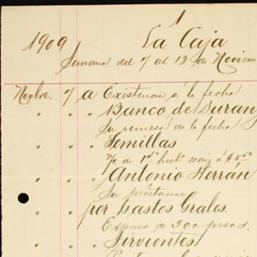 1
1909 La Caja
Semana del 7 al 13 de Noviem
Novbre. 7 a Existencia á la fecha
" " Banco de Duran
Su remesa de la fecha
" " Semillas
" " Antonio Herran
Su préstamo
" " por Gastos Grales.
Expreso de 300 pesos.
" " Sirvientes